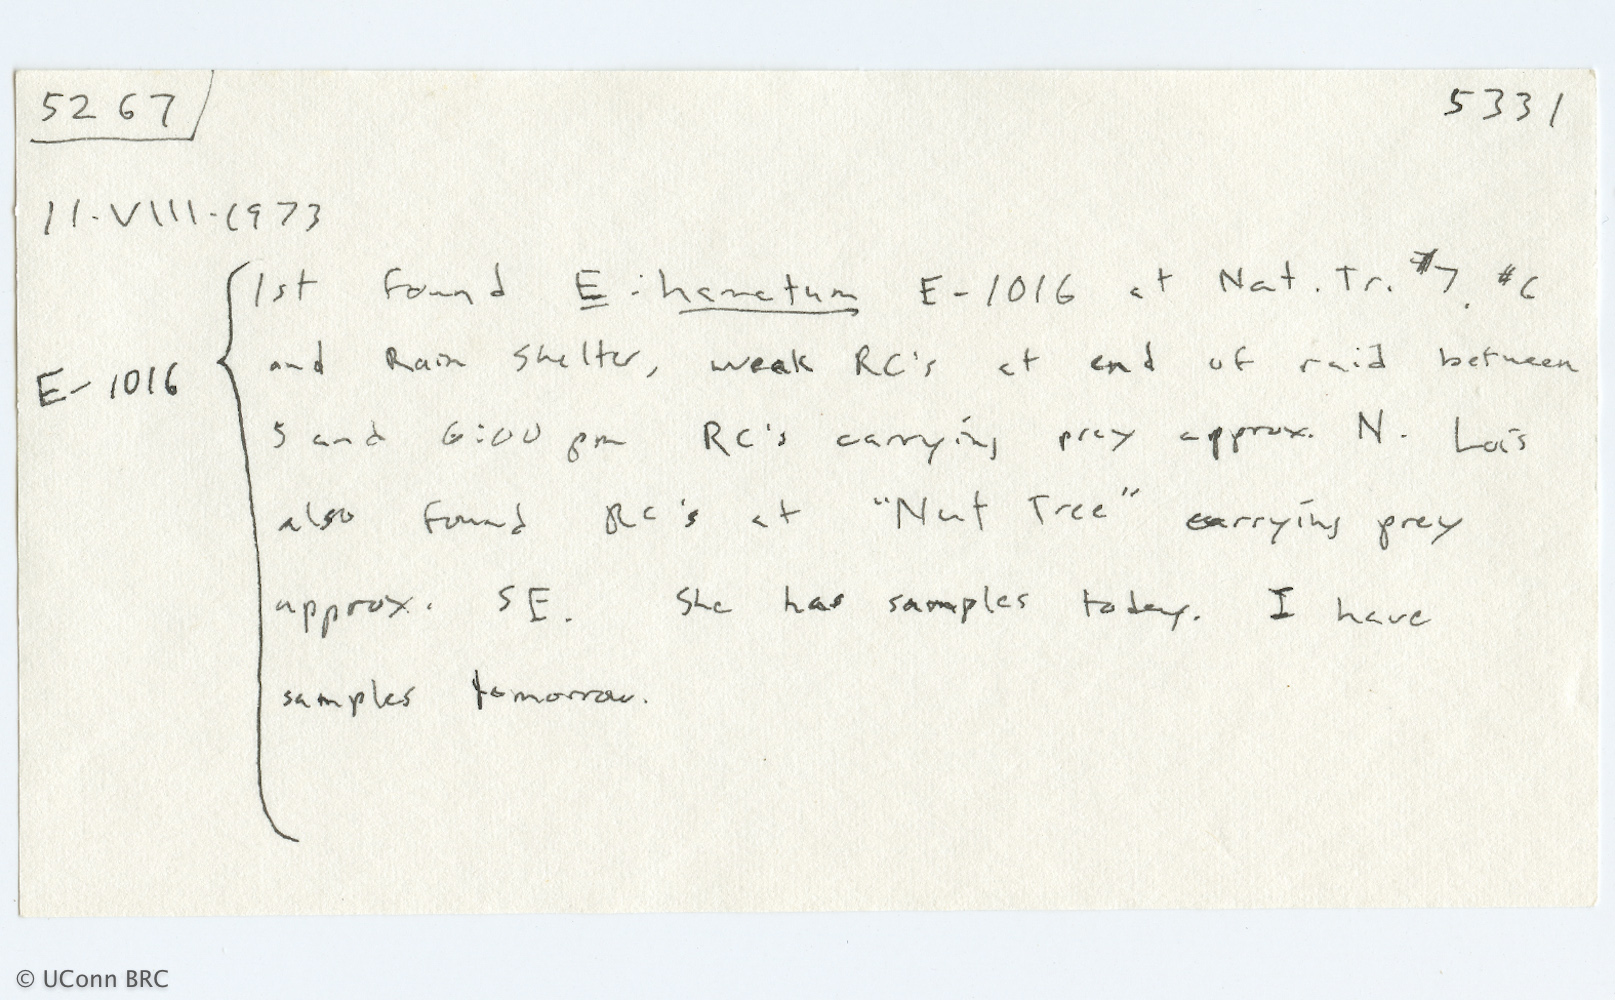 5267
5331
11-VIII-1973
1st found E. hamatum E-1016 at Nat. Tr. #7, #6
and Rain shelter, weak RC's at end of raid between
E-1016
5 and 6:00 pm RC's carrying prey approx. N. Lois
also found RC's at "Nut Tree" carrying prey
approx. SE. She has samples today. I have
samples tomorrow.
© UConn BRC